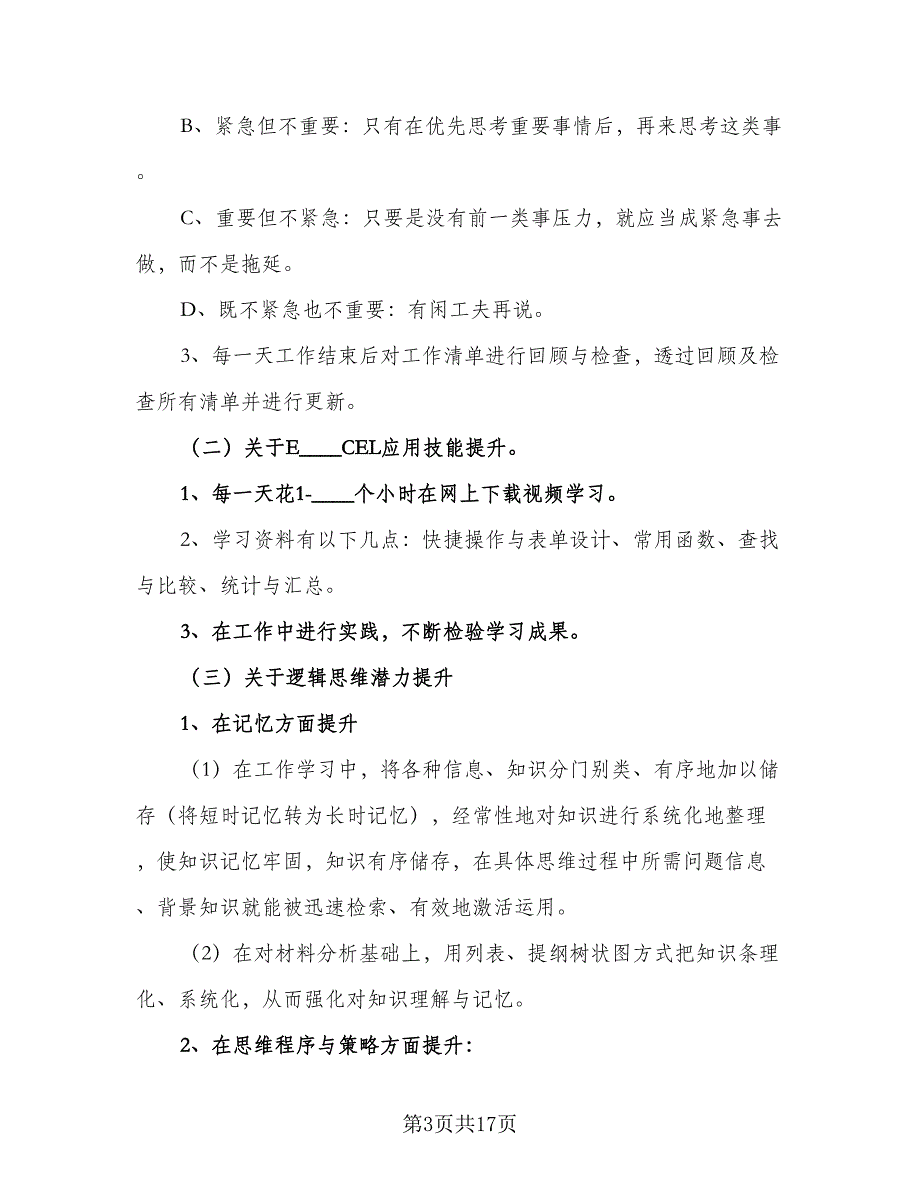 B、紧急但不重要：只有在优先思考重要事情后，再来思考这类事
。
C、重要但不紧急：只要是没有前一类事压力，就应当成紧急事去
做，而不是拖延。
D、既不紧急也不重要：有闲工夫再说。
3、每一天工作结束后对工作清单进行回顾与检查，透过回顾及检
查所有清单并进行更新。
（二）关于E____CEL应用技能提升。
1、每一天花1-____个小时在网上下载视频学习。
2、学习资料有以下几点：快捷操作与表单设计、常用函数、查找
与比较、统计与汇总。
3、在工作中进行实践，不断检验学习成果。
（三）关于逻辑思维潜力提升
1、在记忆方面提升
（1）在工作学习中，将各种信息、知识分门别类、有序地加以储
存（将短时记忆转为长时记忆），经常性地对知识进行系统化地整理
，使知识记忆牢固，知识有序储存，在具体思维过程中所需问题信息
、背景知识就能被迅速检索、有效地激活运用。
（2）在对材料分析基础上，用列表、提纲树状图方式把知识条理
化、系统化，从而强化对知识理解与记忆。
2、在思维程序与策略方面提升：
第3页共17页